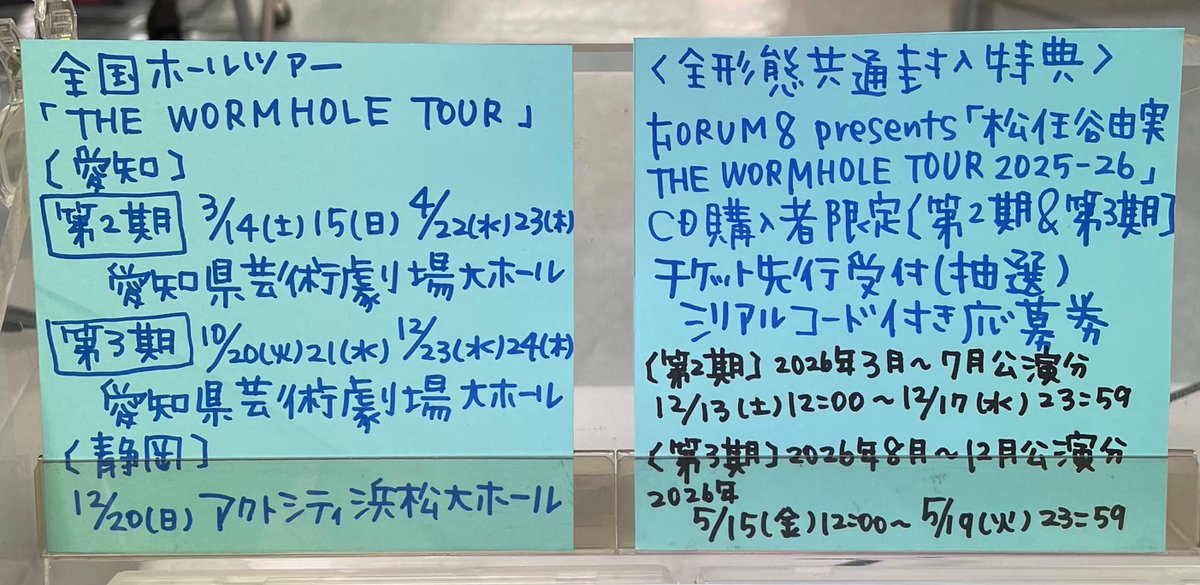 全国ホールツアー
「THE WORMHOLE TOUR」
〔愛知〕
第2期 3/14(土)15(日) 4/22(水)23(木)
愛知県芸術劇場大ホール
第3期 10/20(火)21(水) 12/23(水)24(木)
愛知県芸術劇場大ホール
〔静岡〕
12/20(日) アクトシティ浜松大ホール
〈全形態共通封入特典〉
FORUM8 presents「松任谷由実
THE WORMHOLE TOUR 2025-26」
CD購入者限定〔第2期&第3期〕
チケット先行受付(抽選)
シリアルコード付き応募券
〔第2期〕2026年3月〜7月公演分
12/13(土)12:00〜12/17(水)23:59
〔第3期〕2026年8月〜12月公演分
2026年
5/15(金)12:00〜5/19(火)23:59